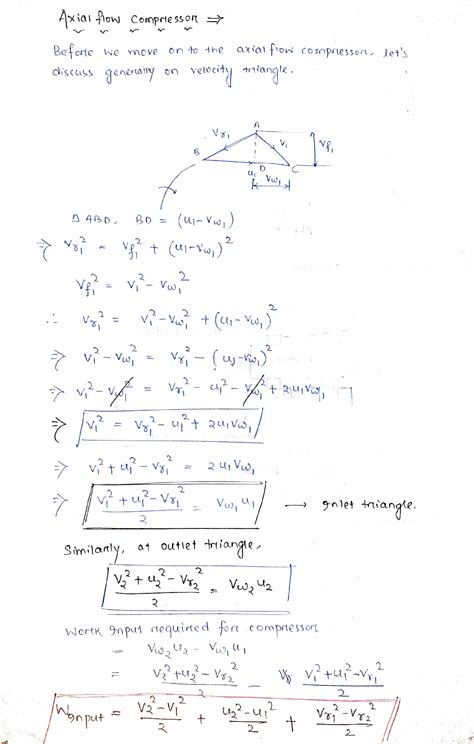 Axial flow Compressor ⇒
Before we move on to the axial flow compressor. let's
discuss generally on velocity triangle.
A
Vr₁
V₁
Vf₁
B
D
C
u₁
Vw₁
Δ ABD, BD = (u₁-Vw₁)
⇒ Vr₁² = Vf₁² + (u₁-Vw₁)²
Vf₁² = V₁² - Vw₁²
∴ Vr₁² = V₁² - Vw₁² + (u₁-Vw₁)²
⇒ V₁² - Vw₁² = Vr₁² - (u₁-Vw₁)²
⇒ V₁² - Vw₁² = Vr₁² - u₁² - Vw₁² + 2u₁Vw₁
⇒ V₁² = Vr₁² - u₁² + 2u₁Vw₁
⇒ V₁² + u₁² - Vr₁² = 2u₁Vw₁
⇒ (V₁² + u₁² - Vr₁²)/2 = Vw₁u₁ → Inlet triangle.
Similarly, at outlet triangle,
(V₂² + u₂² - Vr₂²)/2 = Vw₂u₂
Work input required for compressor
= Vw₂u₂ - Vw₁u₁
= (V₂² + u₂² - Vr₂²)/2 - (V₁² + u₁² - Vr₁²)/2
Winput = (V₂² - V₁²)/2 + (u₂² - u₁²)/2 + (Vr₁² - Vr₂²)/2